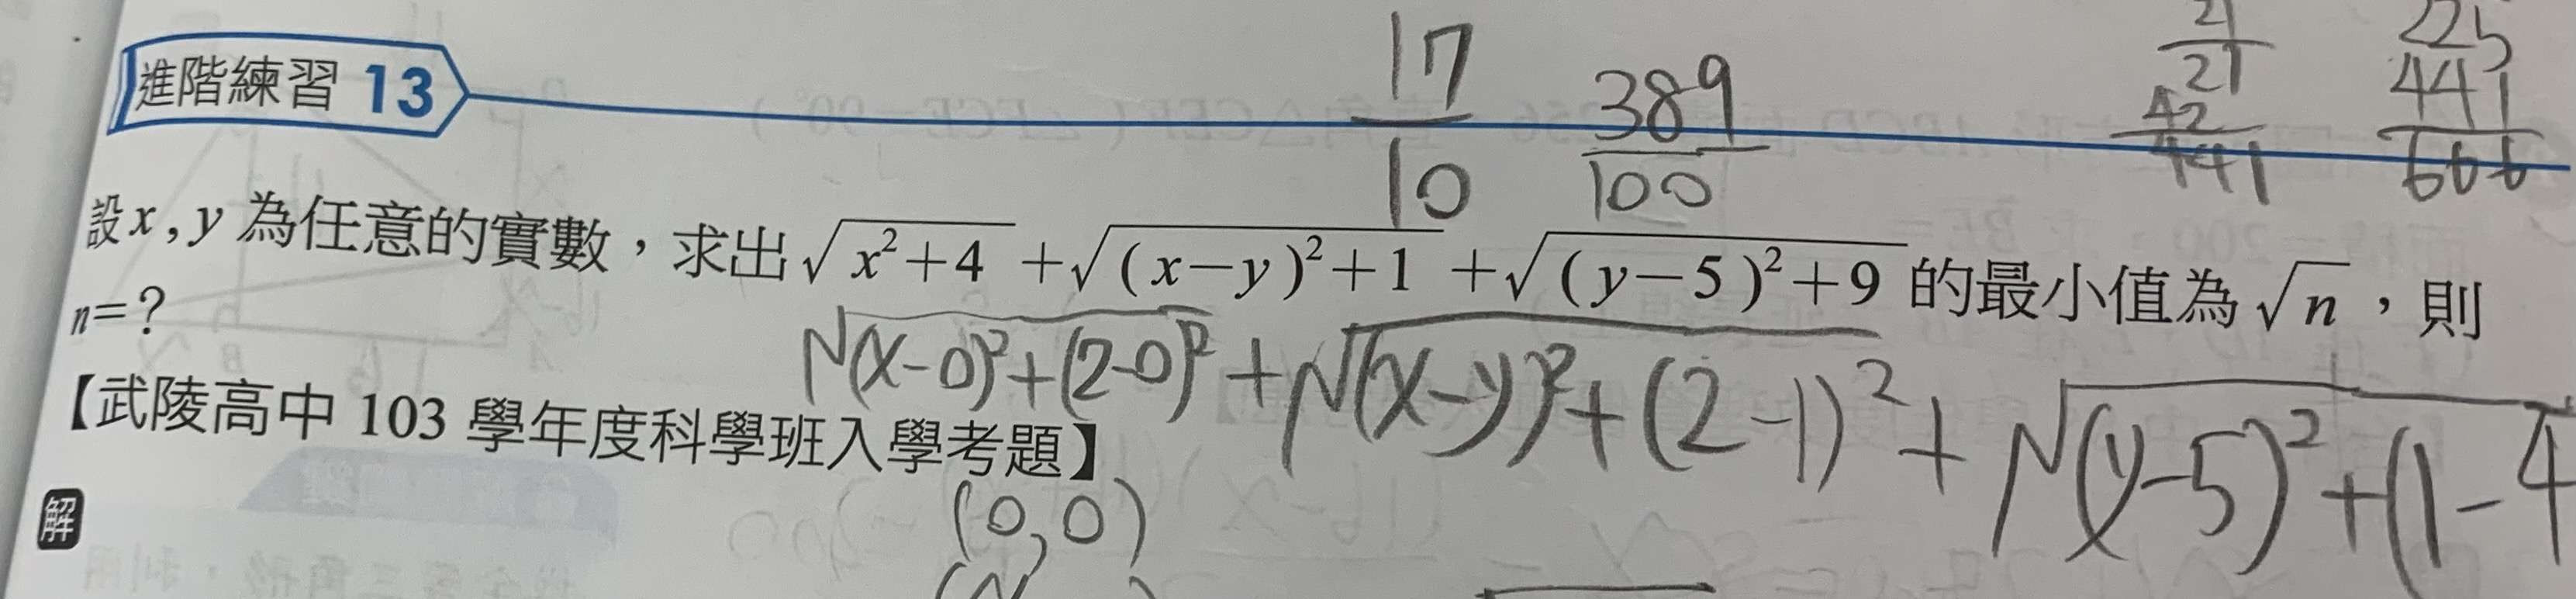 進階練習 13
17
10
389
100
21
21
42
441
225
441
666
設 x , y 為任意的實數，求出 √(x²+4) + √((x−y)²+1) + √((y−5)²+9) 的最小值為 √n ，則
n=？
√((x-0)²+(2-0)²) + √((x-y)²+(2-1)²) + √((y-5)²+(1-4
【武陵高中 103 學年度科學班入學考題】
(0,0)
解